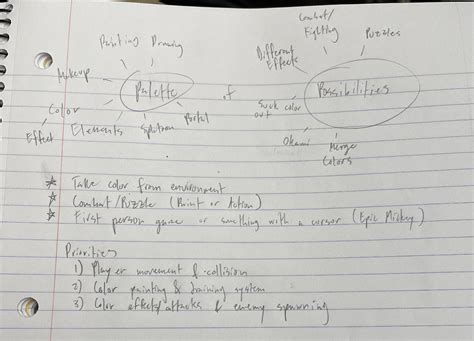 Combat/
Fighting
Puzzles
Painting Drawing
Different
Effects
Makeup
Palette of Possibilities
Color
Suck color
out
Effect
Elements
Splatoon
Portal
Okami
Merge
Colors
Take color from environment
Combat/Puzzle (Paint or Action)
First person game or something with a cursor (Epic Mickey)
Priorities
1) Player movement & collision
2) Color painting & draining system
3) Color effects/attacks & enemy spawning